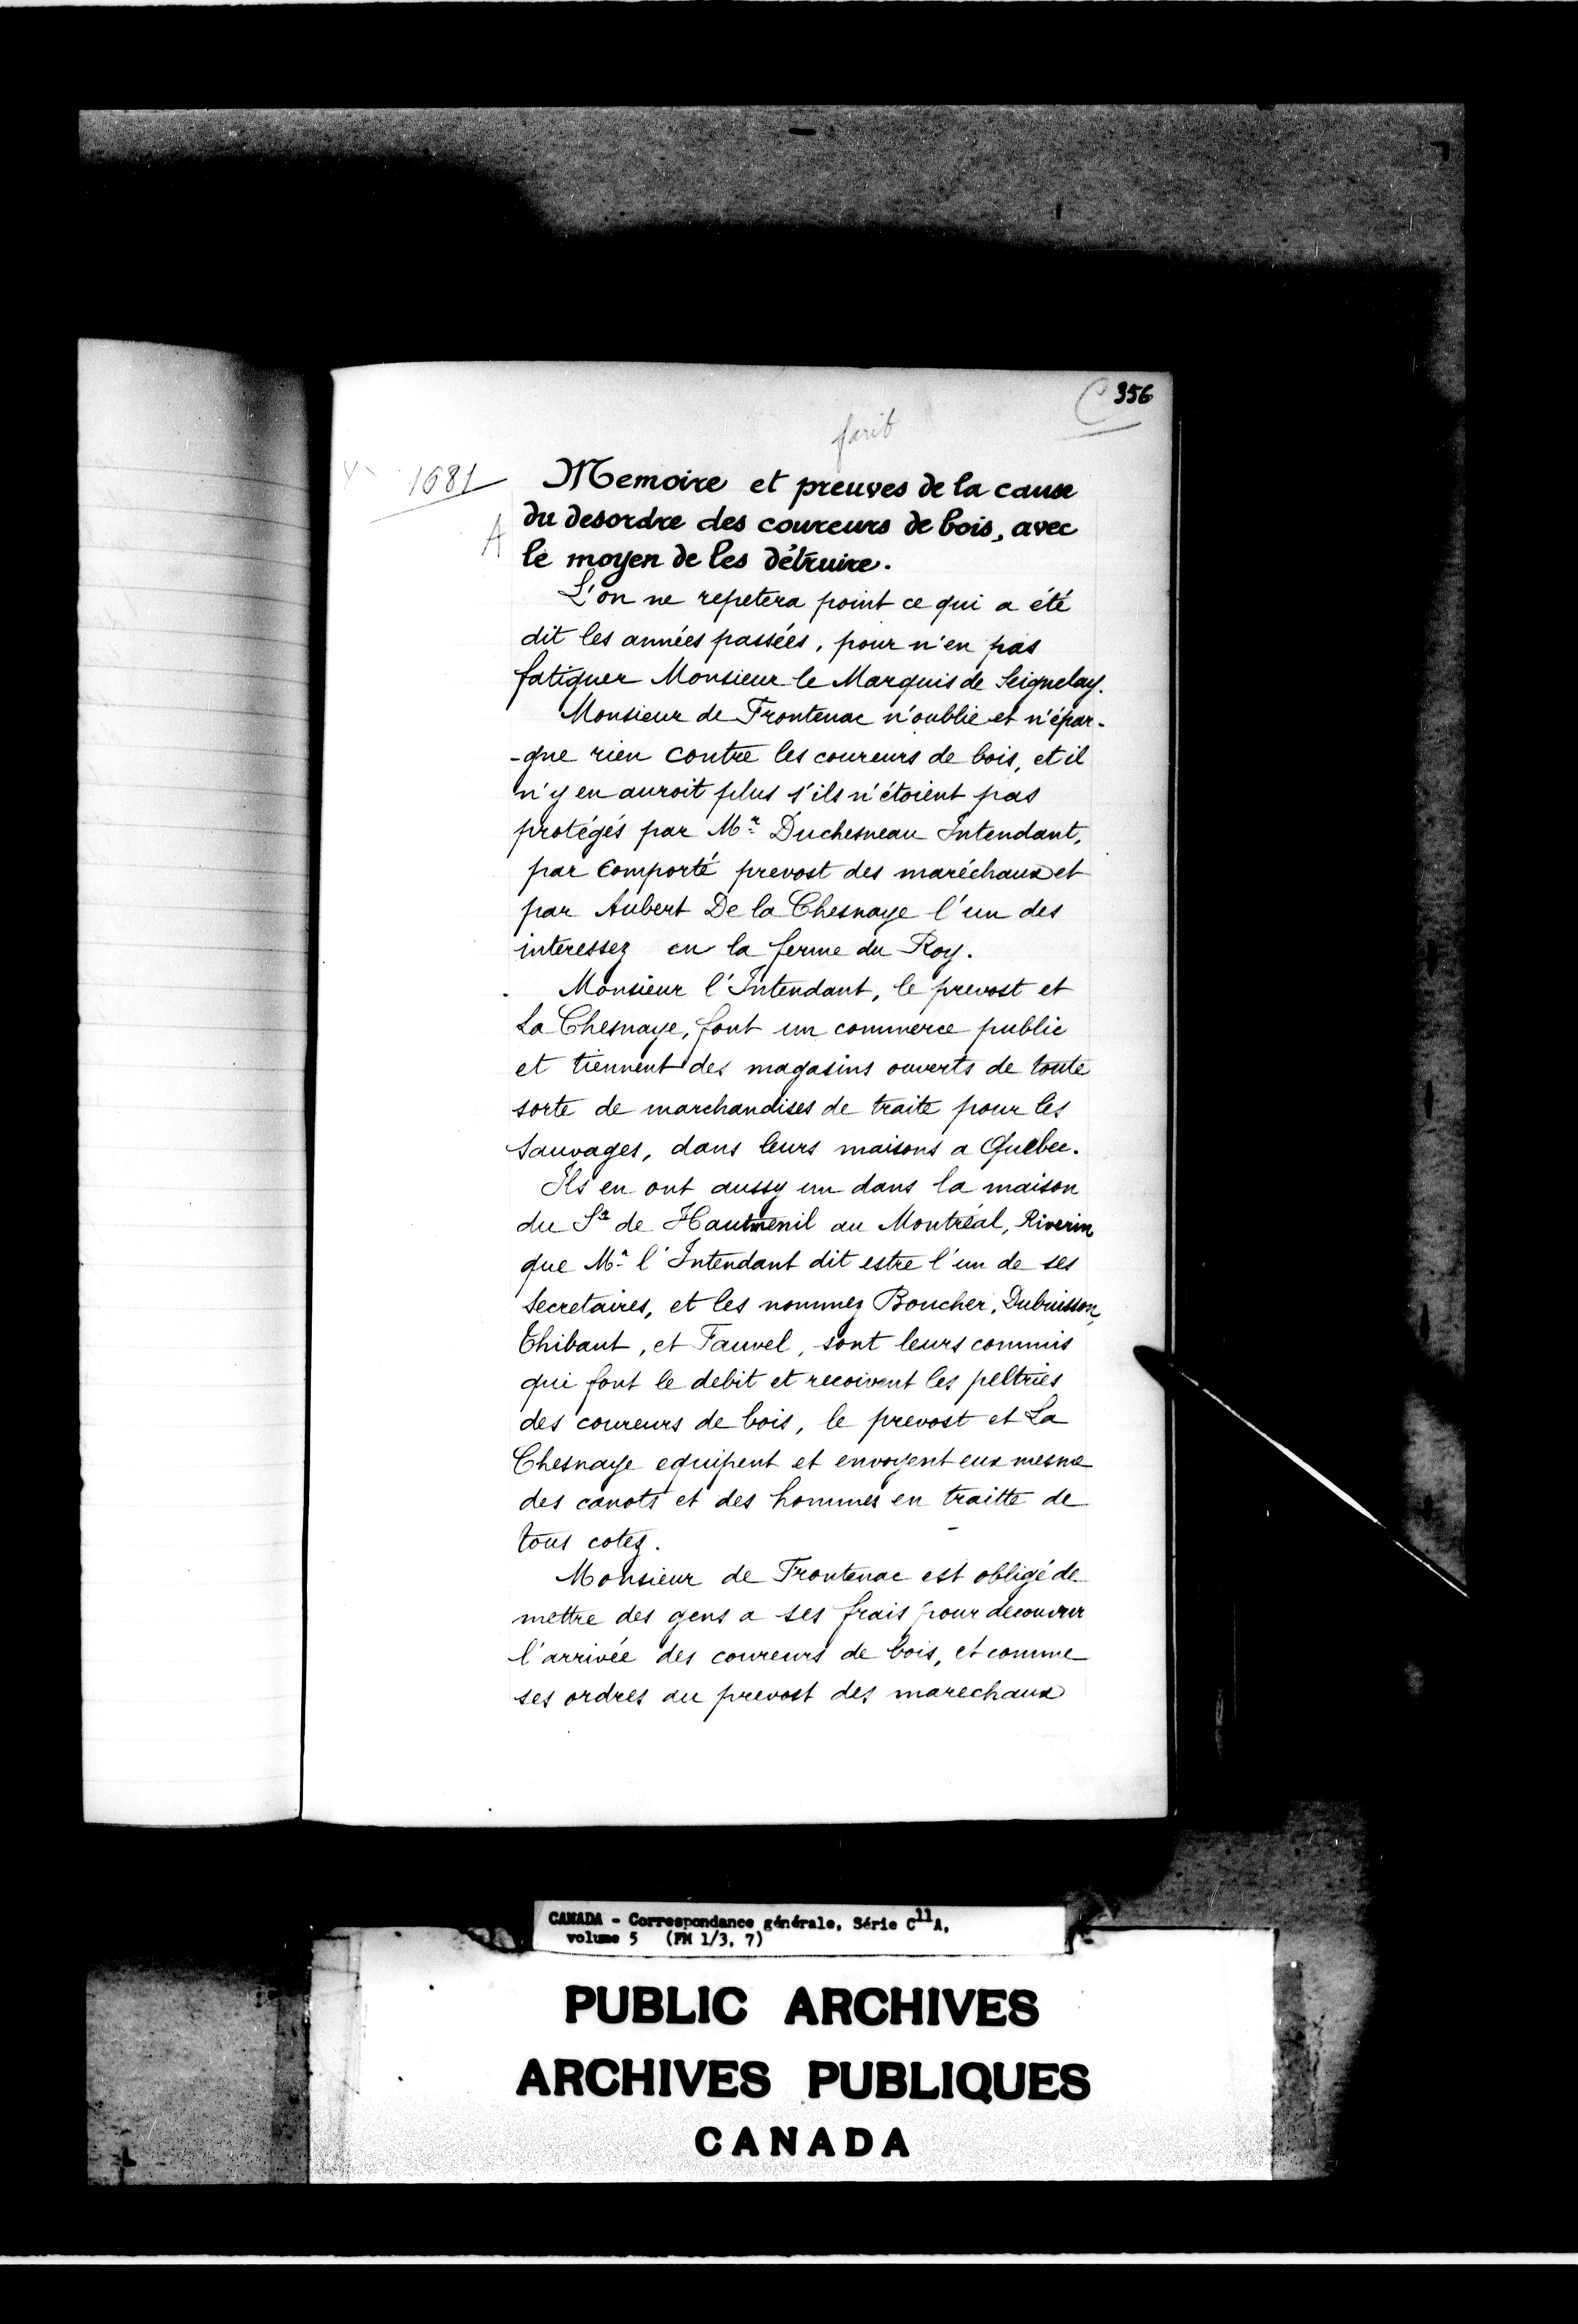 356
1681
A
Memoire et preuves de la cause
du desordre des coureurs de bois, avec
le moyen de les détruire.
L'on ne repetera point ce qui a été
dit les années passées, pour n'en pas
fatiguer Monsieur le Marquis de Seignelay.
Monsieur de Frontenac n'oublie et n'épar-
-gne rien contre les coureurs de bois, et il
n'y en auroit plus s'ils n'étoient pas
protégés par Mr. Duchesneau Intendant,
par Comporté prevost des maréchaux et
par Aubert De la Chesnaye l'un des
interessez en la ferme du Roy.
Monsieur l'Intendant, le prevost et
La Chesnaye, font un commerce public
et tiennent des magasins ouverts de toute
sorte de marchandises de traite pour les
Sauvages, dans leurs maisons a Quebec.
Ils en ont aussy un dans la maison
du Sr. de Hautmenil au Montréal, Riverin
que Mr. l'Intendant dit estre l'un de ses
Secretaires, et les nommez Boucher, Dubuisson,
Thibaut, et Fauvel, sont leurs commis
qui font le debit et recoivent les peltries
des coureurs de bois, le prevost et La
Chesnaye equipent et envoyent eux mesme
des canots et des hommes en traitte de
tous cotez.
Monsieur de Frontenac est obligé de
mettre des gens a ses frais pour decouvrir
l'arrivée des coureurs de bois, et comme
ses ordres au prevost des marechaux
CANADA - Correspondance générale, Série C11A,
volume 5 (FM 1/3, 7)
PUBLIC ARCHIVES
ARCHIVES PUBLIQUES
CANADA